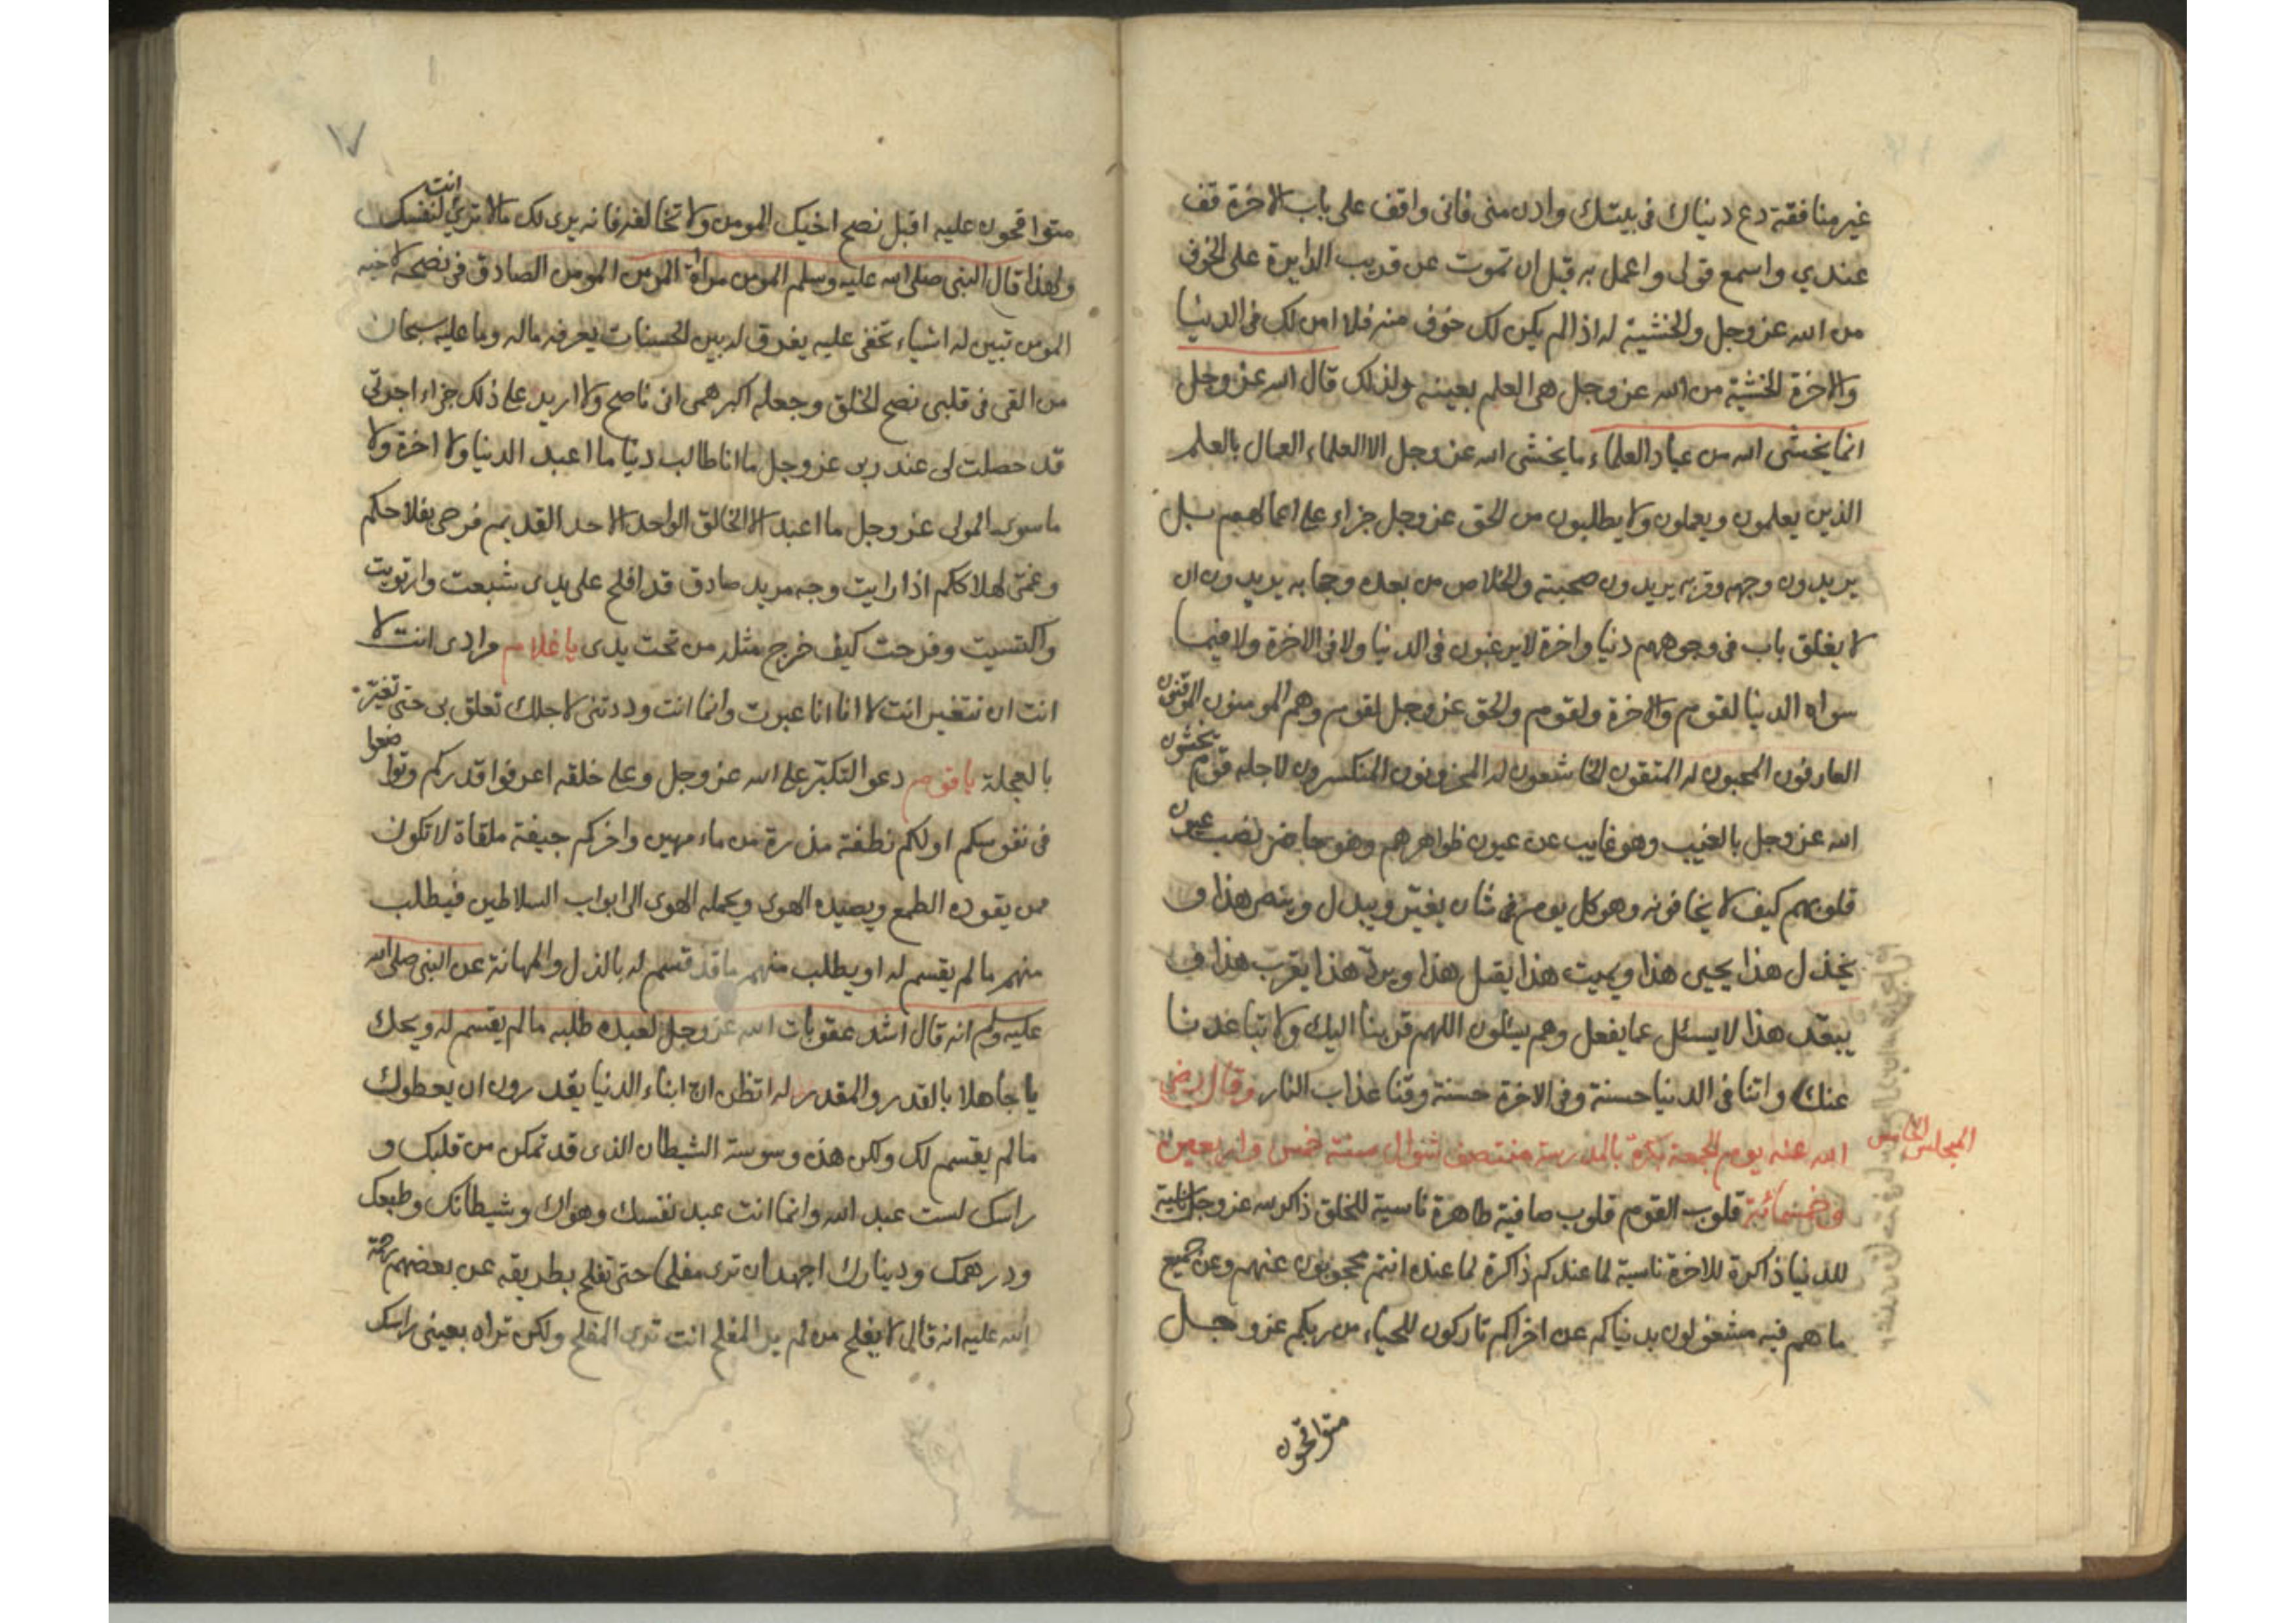 غير منافقة دع دنياك في بيتك وادن مني فاني واقف على باب الاخرة قف
عندي واسمع قولي واعمل به قبل ان تموت عن قريب الدايرة على الخوف
من الله عز وجل والخشية له اذا لم يكن لك خوف منه فلا امن لك في الدنيا
والاخرة الخشية من الله عز وجل هي العلم بعينه ولذلك قال الله عز وجل
انما يخشى الله من عباده العلماء ما يخشى الله عز وجل الا العلماء العمال بالعلم
الذين يعلمون ويعملون ولا يطلبون من الحق عز وجل جزاء على اعمالهم بل
يريدون وجهه وقربه يريدون صحبته والخلاص من بعده وحجابه يريدون ان
لا يغلق باب في وجوههم دنيا واخرة لا يرغبون في الدنيا ولا في الاخرة ولا فيما
سواه الدنيا لقوم والاخرة ولقوم والحق عز وجل لقوم وهم المومنون الموقنون
العارفون المحبون له المتقون الخاشعون له المحزونون المنكسرون لاجله قوم يخشون
الله عز وجل بالغيب وهو غايب عن عيون ظواهرهم وهو حاضر نصب عيون
قلوبهم كيف لا يخافونه وهو كل يوم في شان يغير ويبدل وينصر هذا و
يخذل هذا يحيى هذا ويميت هذا يقبل هذا ويرد هذا يقرب هذا و
يبعد هذا لا يسئل عما يفعل وهم يسئلون اللهم قربنا اليك ولا تباعدنا
عنك واتنا في الدنيا حسنة وفي الاخرة حسنة وقنا عذاب النار وقال رضي
المجلس الخامس
الله عنه يوم الجمعة بكرة بالمدرسة منتصف شوال سنة خمس واربعين
وخمسمائة قلوب القوم قلوب صافية طاهرة ناسية للخلق ذاكرة لله عز وجل ناسية
للدنيا ذاكرة للاخرة ناسية لما عندكم ذاكرة لما عنده انتم محجوبون عنهم وعن جميع
ما هم فيه مشغولون بدنياكم عن اخراكم تاركون للحياء من ربكم عز وجل
متواقحون
١٧
متواقحون عليه اقبل نصح اخيك المومن ولا تخالفه فانه يرى لك مالا ترى انت لنفسك
ولهذا قال النبي صلى الله عليه وسلم المومن مراة المومن المومن الصادق في نصحه لاخيه
المومن تبين له اشياء تخفى عليه يفرق له بين الحسنات يعرفه ماله وما عليه سبحان
من القى في قلبي نصح الخلق وجعله اكبر همي اني ناصح ولا اريد على ذلك جزاء اجرتي
قد حصلت لي عند ربي عز وجل ما انا طالب دنيا ما اعبد الدنيا ولا اخرة ولا
ما سوى المولى عز وجل ما اعبد الا الخالق الواحد الاحد القديم فرحى بفلاحكم
وغمى لهلاككم اذا رايت وجه مريد صادق قد افلح على يدى شبعت وارتويت
واكتسيت وفرحت كيف خرج مثله من تحت يدى يا غلام مرادى انت لا
انت ان تتغير انت لا انا انا عبرت وانما انت وددتنى لاجلك تعلق بى حتى تغبر
بالعجلة يا قوم دعوا التكبر على الله عز وجل وعلى خلقه اعرفوا قدركم وتواضعوا
في نفوسكم اولكم نطفة مذرة من ماء مهين واخركم جيفة ملقاة لا تكون
ممن يقوده الطمع ويصيده الهوى ويحمله الهوى الى ابواب السلاطين فيطلب
منهم ما لم يقسم له او يطلب منهم ما قد قسم له بالذل والمهانة عن النبي صلى الله
عليه وسلم انه قال اشد عقوبات الله عز وجل لعبده طلبه ما لم يقسم له ويحك
يا جاهلا بالقدر والمقدر له اتظن ان ابناء الدنيا يقدرون ان يعطوك
ما لم يقسم لك ولكن هذه وسوسة الشيطان الذى قد تمكن من قلبك و
راسك لست عبد الله وانما انت عبد نفسك وهواك وشيطانك وطبعك
ودرهمك ودينارك اجهد ان ترى مفلحا حتى تفلح بطريقه عن بعضهم رحمة
الله عليه انه قال لا يفلح من لم ير المفلح انت ترى المفلح ولكن تراه بعينى راسك